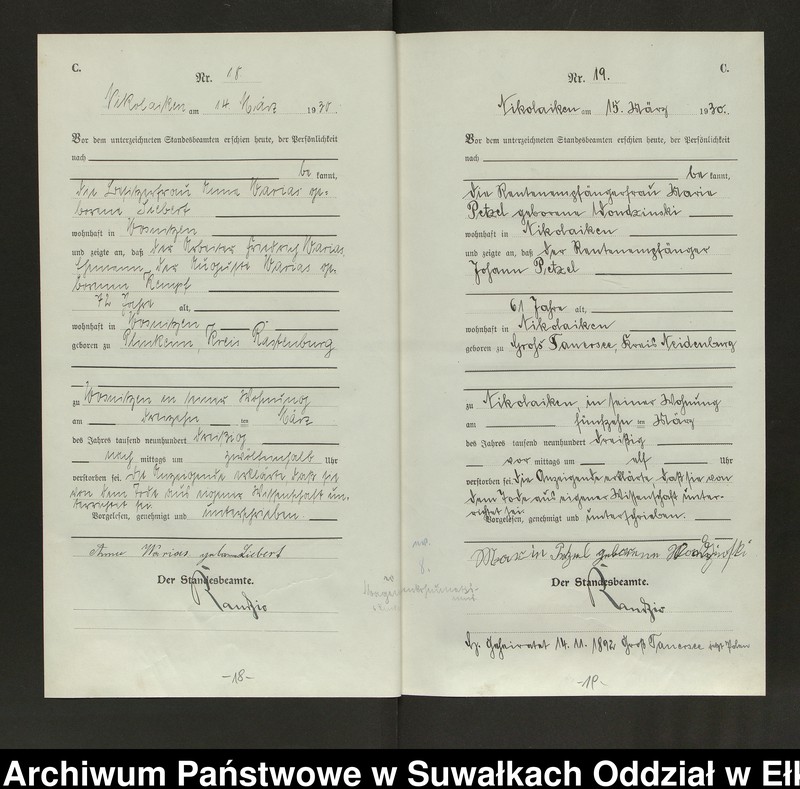 C.
Nr. 18
Nikolaiken am 14 März 1930.
Vor dem unterzeichneten Standesbeamten erschien heute, der Persönlichkeit
nach
be kannt,
die Besitzerfrau Anna Warias ge-
borene Siebert
wohnhaft in Wosnitzen
und zeigte an, daß der Arbeiter Friedrich Warias
Ehemann der Auguste Warias ge-
borenen Kempf
72 Jahre alt,
wohnhaft in Wosnitzen
geboren zu Kreis Rastenburg
zu Wosnitzen in seiner Wohnung
am dreizehn ten März
des Jahres tausend neunhundert dreißig
nach mittags um zwölfeinhalb Uhr
verstorben sei. Die Anzeigende erklärte daß sie
von dem Tode aus eigener Wissenschaft un-
terrichtet sei.
Vorgelesen, genehmigt und unterschrieben.
Anna Warias geborene Siebert
Der Standesbeamte.
Randzio
-18-
C.
Nr. 19.
Nikolaiken am 15. März 1930.
Vor dem unterzeichneten Standesbeamten erschien heute, der Persönlichkeit
nach
be kannt,
die Rentenempfängerfrau Marie
Petzel geborene Wondzinski
wohnhaft in Nikolaiken
und zeigte an, daß der Rentenempfänger
Johann Petzel
61 Jahre alt,
wohnhaft in Nikolaiken
geboren zu Groß Tauersee, Kreis Neidenburg
zu Nikolaiken, in seiner Wohnung
am fünfzehn ten März
des Jahres tausend neunhundert dreißig
vor mittags um elf Uhr
verstorben sei. Die Anzeigende erklärte daß sie von
dem Tode aus eigener Wissenschaft unter-
richtet sei.
Vorgelesen, genehmigt und unterschrieben.
Petzel geborene
Der Standesbeamte.
Randzio
Geheiratet 14. 11. 1892 Groß Tauersee jetzt Polen
-19-
Archiwum Państwowe w Suwałkach Oddział w Ełk